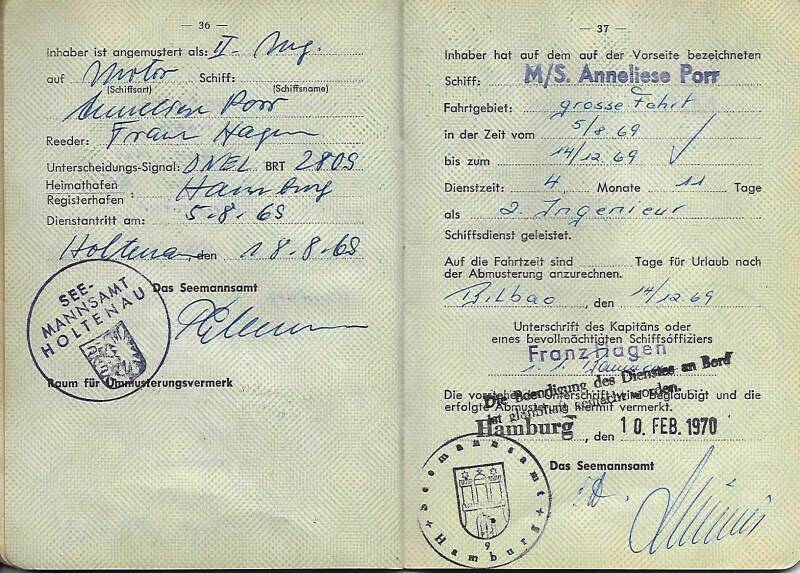 — 36 —
Inhaber ist angemustert als: II. Ing.
auf Motor Schiff:
(Schiffsart) (Schiffsname)
Anneliese Porr
Reeder: Franz Hagen
Unterscheidungs-Signal: DNEL BRT 2809
Heimathafen
Registerhafen : Hamburg
Dienstantritt am: 5.8.69
Holtenau, den 18.8.69
Das Seemannsamt
SEE-
MANNSAMT
HOLTENAU
Raum für Ummusterungsvermerk
— 37 —
Inhaber hat auf dem auf der Vorseite bezeichneten
Schiff: M/S. Anneliese Porr
Fahrtgebiet: grosse Fahrt
in der Zeit vom 5/8.69
bis zum 14/12.69
Dienstzeit: 4 Monate 11 Tage
als 2. Ingenieur
Schiffsdienst geleistet.
Auf die Fahrtzeit sind Tage für Urlaub nach
der Abmusterung anzurechnen.
Bilbao, den 14/12.69
Unterschrift des Kapitäns oder
eines bevollmächtigten Schiffsoffiziers
Franz Hagen
Die Beendigung des Dienstes an Bord
ist glaubhaft gemacht worden.
Die vorstehende Unterschrift wird beglaubigt und die
erfolgte Abmusterung hiermit vermerkt.
Hamburg, den 10. FEB. 1970
Das Seemannsamt
Seemannsamt
9
Hamburg